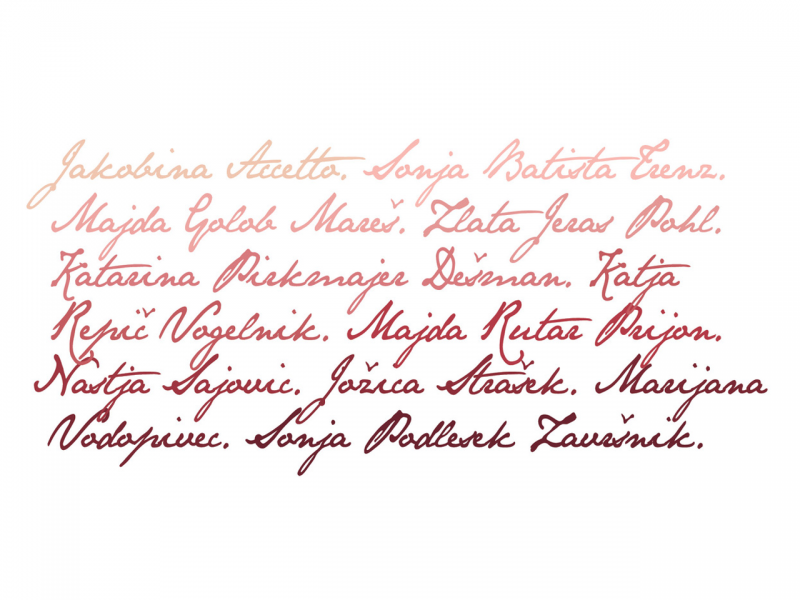 Jakobina Accetto. Sonja Batista Trenz.
Majda Golob Mareš. Zlata Jeras Pohl.
Katarina Pirkmajer Dešman. Katja
Repič Vogelnik. Majda Rutar Prijon.
Nastja Sajovic. Jožica Strašek. Marijana
Vodopivec. Sonja Podlesek Završnik.